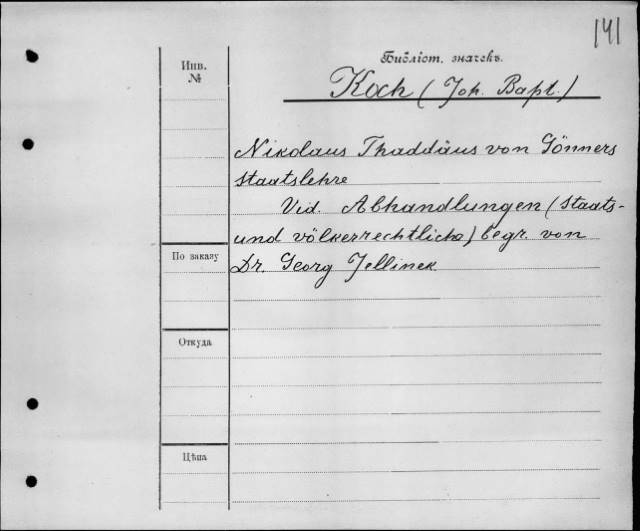 141
Библіот. значекъ.
Инв.
№
Koch (Joh. Bapt.)
Nikolaus Thaddäus von Gönners
Staatslehre
Vid. Abhandlungen (Staats-
und völkerrechtliche) begr. von
По заказу
Dr. Georg Jellinek
Откуда
Цѣна